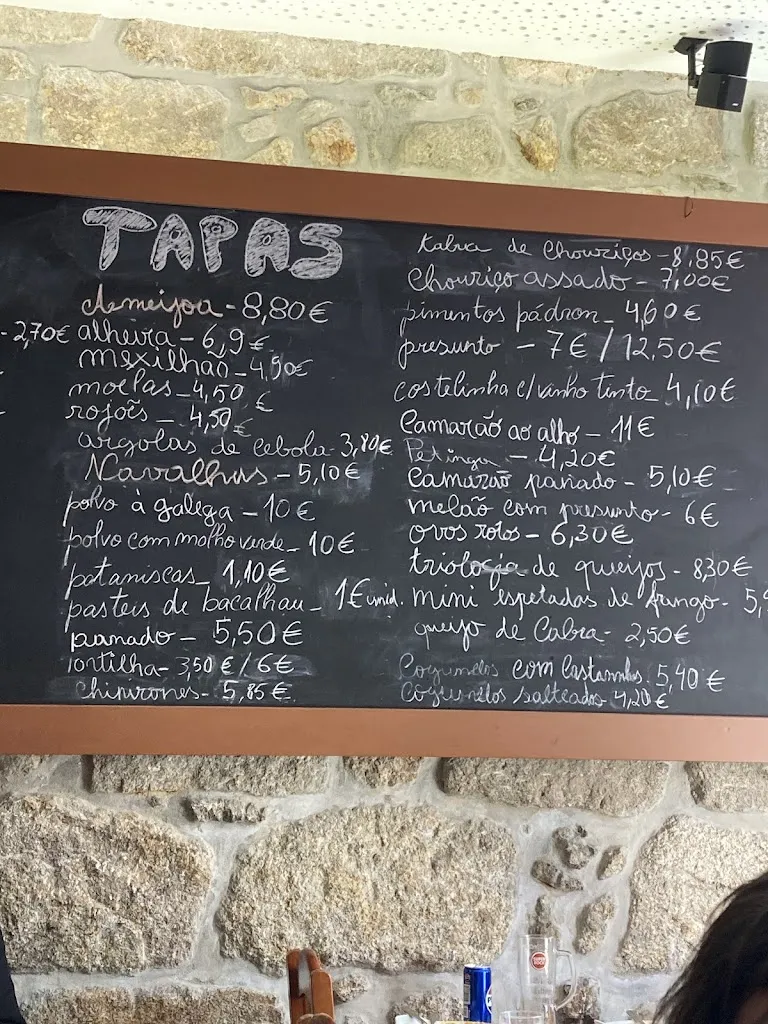 TAPAS
Ameijoa - 8,80€
- 2,70€
alheira - 6,9€
mexilhão - 4,90€
moelas - 4,50€
rojões - 4,50€
argolas de cebola - 3,80€
Navalhas - 5,10€
polvo à galega - 10€
polvo com molho verde - 10€
pataniscas - 1,10€
pasteis de bacalhau - 1€ unid.
panado - 5,50€
tortilha - 3,50€ / 6€
chipirones - 5,85€
tabua de chouriços - 8,85€
chouriço assado - 7,00€
pimentos pádron - 4,60€
presunto - 7€ / 12,50€
costelinha c/vinho tinto - 4,10€
Camarão ao alho - 11€
Petinga - 4,20€
Camarão panado - 5,10€
melão com presunto - 6€
ovos rotos - 6,30€
triologia de queijos - 8,30€
mini espetadas de frango - 5,
queijo de Cabra - 2,50€
Cogumelos com Castanhas 5,40€
cogumelos salteados 4,20€